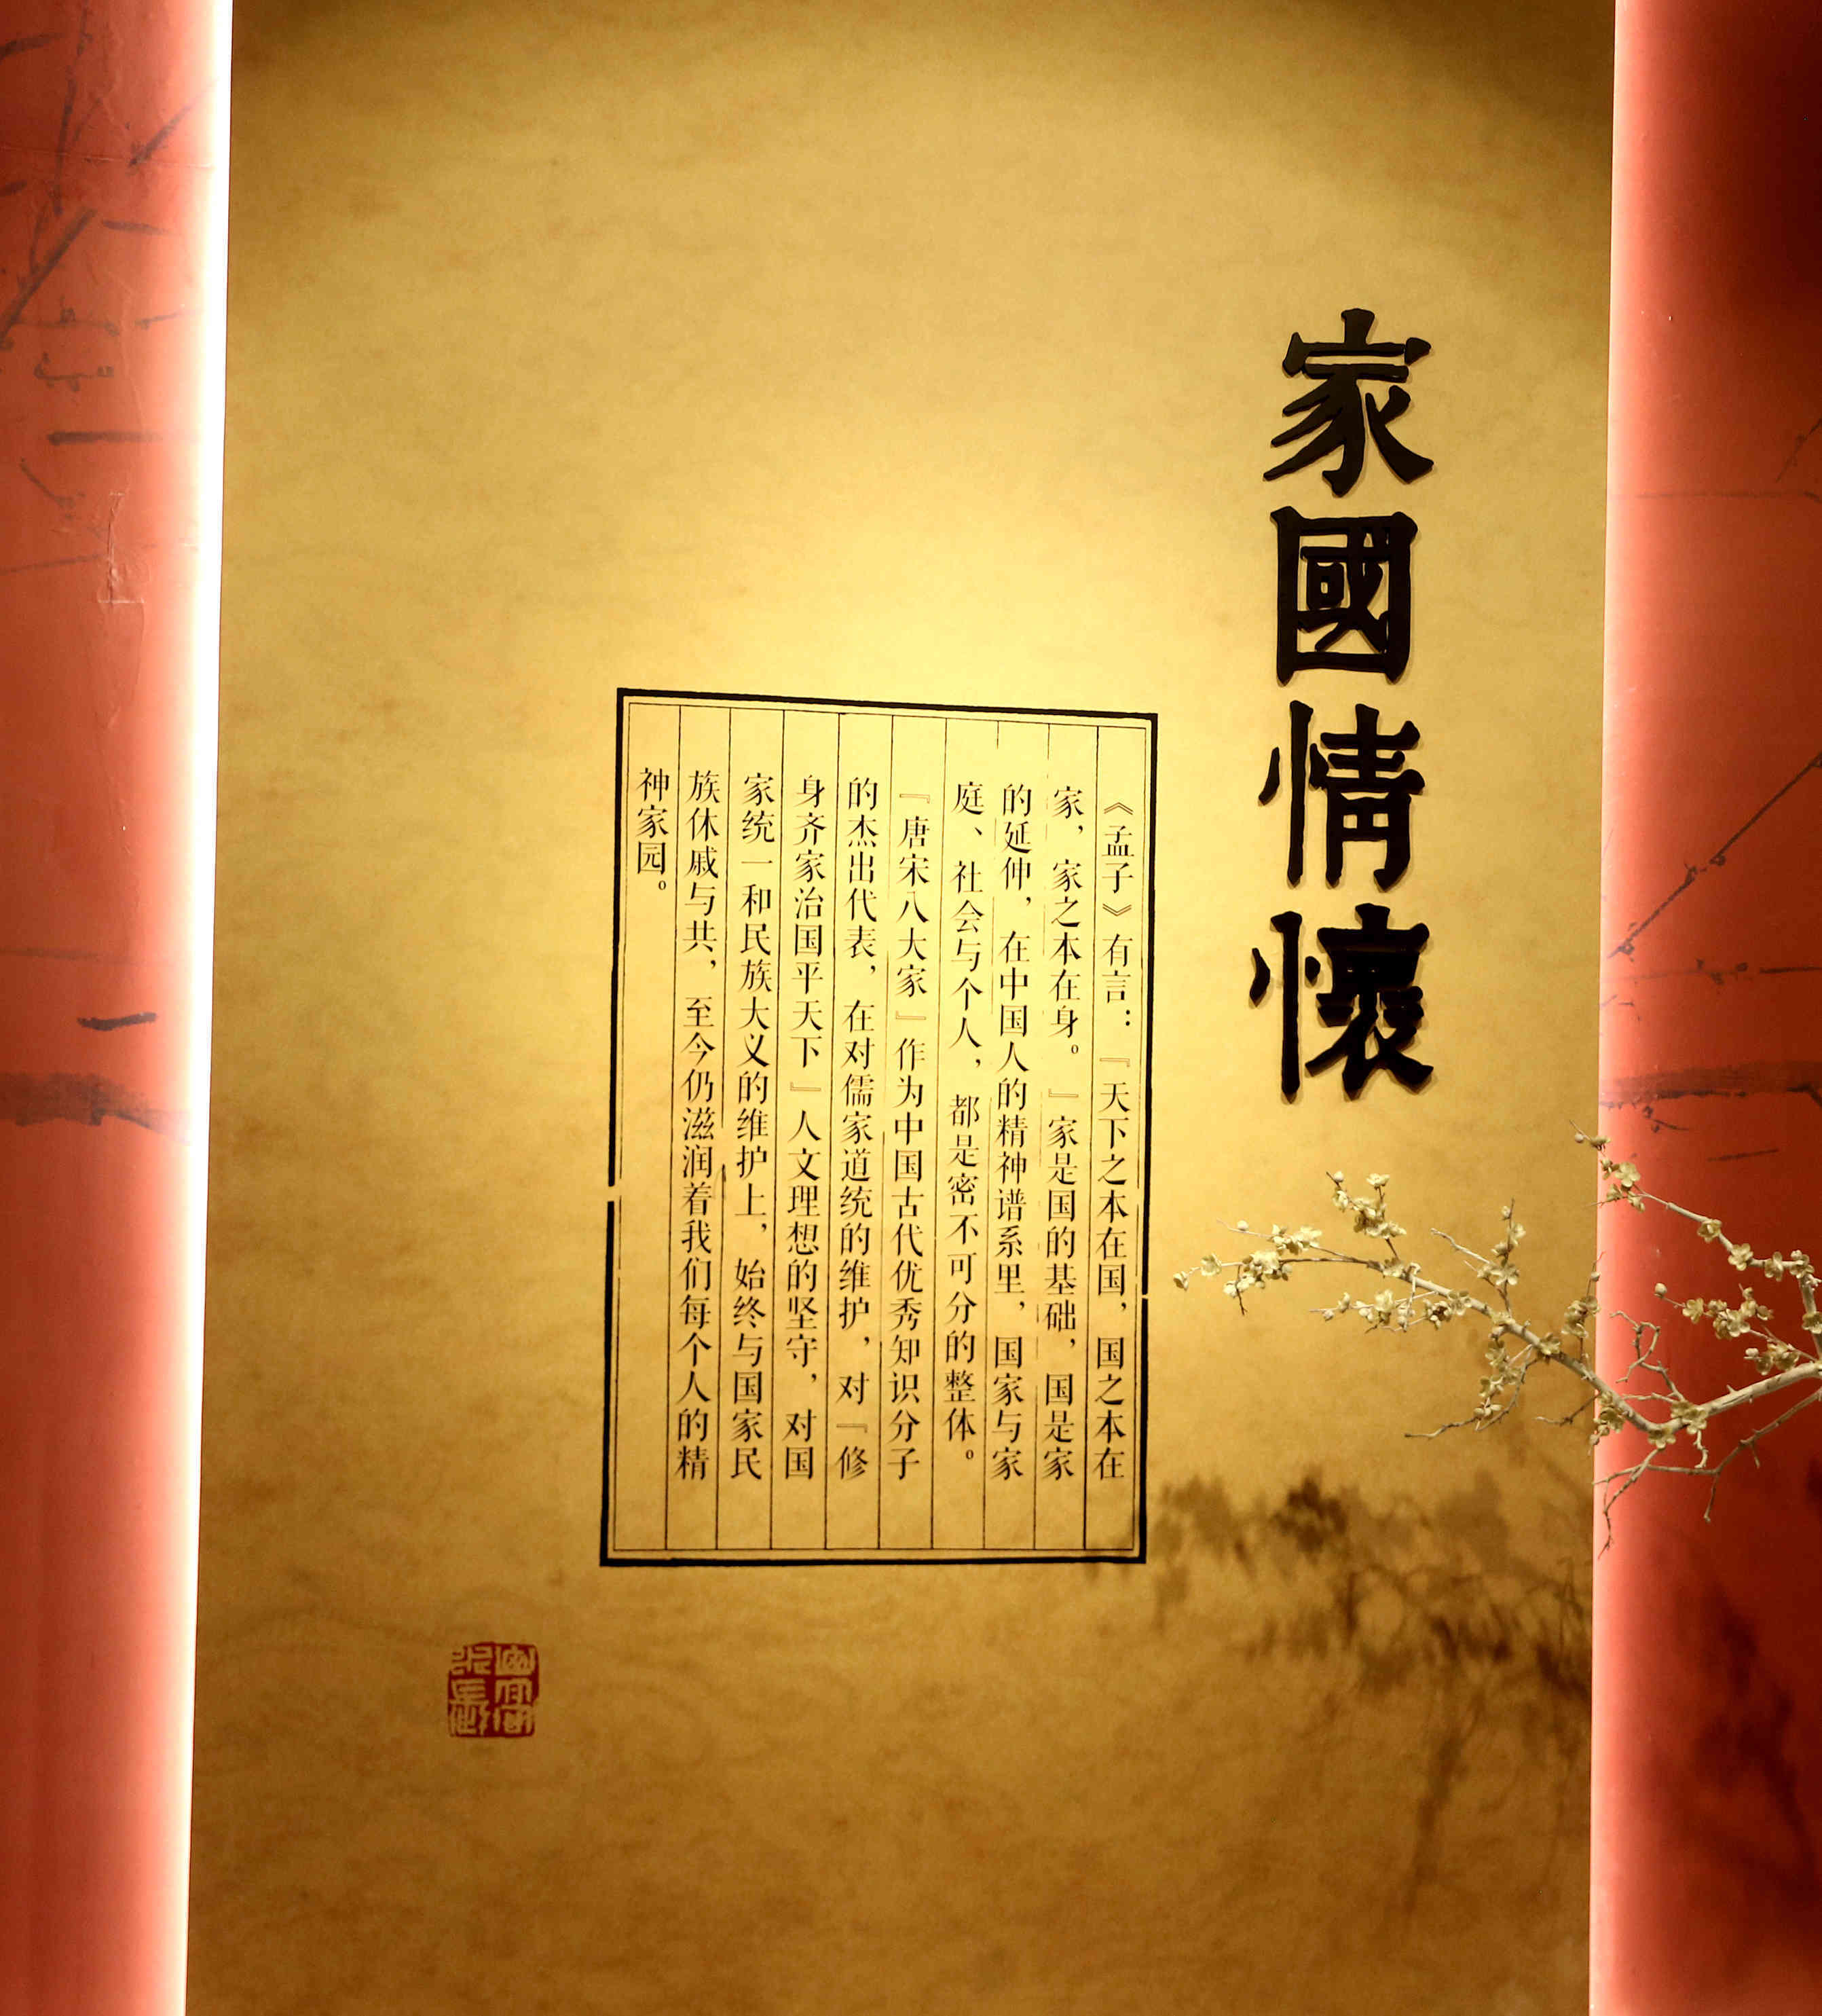 家國情懷
《孟子》有言：『天下之本在国，国之本在
家，家之本在身。』家是国的基础，国是家
的延伸，在中国人的精神谱系里，国家与家
庭、社会与个人，都是密不可分的整体。
『唐宋八大家』作为中国古代优秀知识分子
的杰出代表，在对儒家道统的维护，对『修
身齐家治国平天下』人文理想的坚守，对国
家统一和民族大义的维护上，始终与国家民
族休戚与共，至今仍滋润着我们每个人的精
神家园。